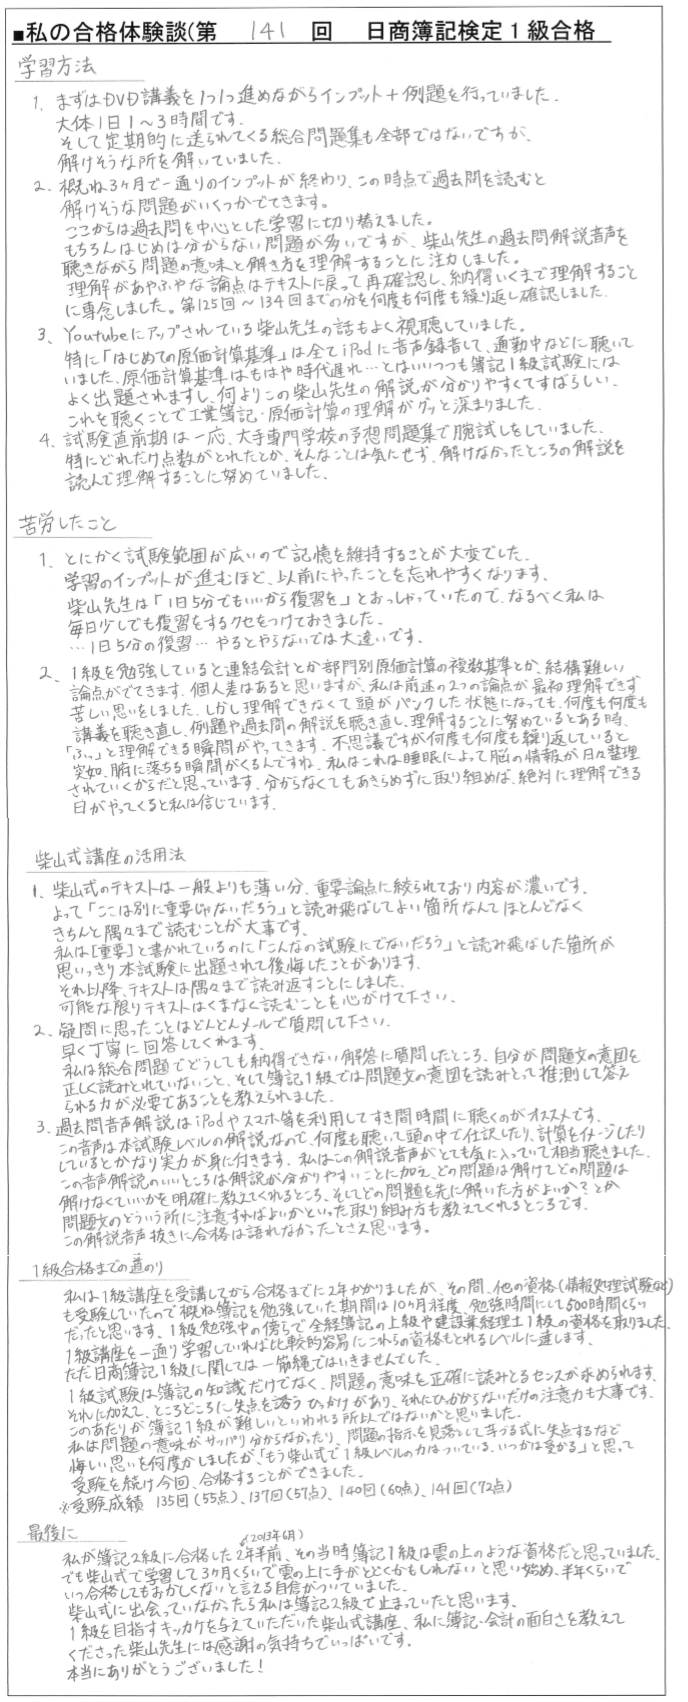 ■私の合格体験談(第 141 回 日商簿記検定1級合格
学習方法
1. まずはDVD講義を1つ1つ進めながらインプット+例題を行っていました.
大体1日1〜3時間です.
そして定期的に送られてくる総合問題集も全部ではないですが、
解けそうな所を解いていました.
2. 概ね3ヶ月で一通りのインプットが終わり、この時点で過去問を読むと
解けそうな問題がいくつかでてきます。
ここからは過去問を中心とした学習に切り替えました。
もちろんはじめは分からない問題が多いですが、柴山先生の過去問解説音声を
聴きながら問題の意味と解き方を理解することに注力しました。
理解があやふやな論点はテキストに戻って再確認し、納得いくまで理解すること
に専念しました。第125回〜134回までの分を何度も何度も繰り返し確認しました.
3. Youtubeにアップされている柴山先生の話もよく視聴していました。
特に「はじめての原価計算基準」は全てiPodに音声録音して、通勤中などに聴いて
いました.原価計算基準はもはや時代遅れ…とはいいつつも簿記1級試験には
よく出題されますし、何よりこの柴山先生の解説が分かりやすくてすばらしい.
これを聴くことで工業簿記・原価計算の理解がグッと深まりました.
4. 試験直前期は一応、大手専門学校の予想問題集で腕試しをしていました.
特にどれだけ点数がとれたとか、そんなことは気にせず、解けなかったところの解説を
読んで理解することに努めていました.
苦労したこと
1、とにかく試験範囲が広いので記憶を維持することが大変でした.
学習のインプットが進むほど、以前にやったことを忘れやすくなります.
柴山先生は「1日5分でもいいから復習を」とおっしゃっていたので、なるべく私は
毎日少しでも復習をするクセをつけておきました.
…1日5分の復習…やるとやらないでは大違いです.
2、1級を勉強していると連結会計とか部門別原価計算の複数基準とか、結構難しい
論点がでてきます.個人差はあると思いますが、私は前述の2つの論点が最初理解できず
苦しい思いをしました.しかし理解できなくて頭がパンクした状態になっても、何度も何度も
講義を聴き直し、例題や過去問の解説を聴き直し、理解することに努めているとある時、
「ふっ」と理解できる瞬間がやってきます.不思議ですが何度も何度も繰り返していると
突如、腑に落ちる瞬間がくるんですね.私はこれは睡眠によって脳の情報が日々整理
されていくからだと思っています.分からなくてもあきらめずに取り組めば、絶対に理解できる
日がやってくると私は信じています.
柴山式講座の活用法
1. 柴山式のテキストは一般よりも薄い分、重要論点に絞られており内容が濃いです.
よって「ここは別に重要じゃないだろう」と読み飛ばしてよい箇所なんてほとんどなく
きちんと隅々まで読むことが大事です.
私は[重要]と書かれているのに「こんなの試験にでないだろう」と読み飛ばした箇所が
思いっきり本試験に出題されて後悔したことがあります.
それ以降、テキストは隅々まで読み返すことにしました.
可能な限りテキストはくまなく読むことを心がけて下さい、
2、疑問に思ったことはどんどんメールで質問して下さい.
早く丁寧に回答してくれます.
私は総合問題でどうしても納得できない解答に質問したところ、自分が問題文の意図を
正しく読みとれていないこと、そして簿記1級では問題文の意図を読みとって推測して答え
られる力が必要であることを教えられました.
3. 過去問音声解説はiPodやスマホ等を利用してすき間時間に聴くのがオススメです.
この音声は本試験レベルの解説なので、何度も聴いて頭の中で仕訳したり、計算をイメージしたり
しているとかなり実力が身に付きます.私はこの解説音声がとても気に入っていて相当聴きました.
この音声解説のいいところは解説が分かりやすいことに加え、どの問題は解けてどの問題は
解けなくていいかを明確に教えてくれるところ、そしてどの問題を先に解いた方がよいか?とか
問題文のどういう所に注意すればよいかといった取り組み方も教えてくれるところです.
この解説音声抜きに合格は語れなかったとさえ思います。
1級合格までの道のり
私は1級講座を受講してから合格までに2年かかりましたが、その間、他の資格(情報処理試験など)
も受験していたので概ね簿記を勉強していた期間は10ヶ月程度、勉強時間にして500時間くらい
だったと思います、1級勉強中の傍らで全経簿記の上級や建設業経理士1級の資格を取りました.
1級講座を一通り学習していれば比較的容易にこれらの資格もとれるレベルに達します.
ただ日商簿記1級に関しては一筋縄ではいきませんでした.
1級試験は簿記の知識だけでなく、問題の意味を正確に読みとるセンスが求められます.
それに加えて、ところどころに失点を誘うひっかけがあり、それにひっかからないだけの注意力も大事です.
このあたりが簿記1級が難しいといわれる所以ではないかと思いました.
私は問題の意味がサッパリ分からなかったり、問題の指示を見落として芋づる式に失点するなど
悔しい思いを何度かしましたが、「もう柴山式で1級レベルの力はついている.いつかは受かる」と思って
受験を続け今回、合格することができました.
※受験成績 135回(55点)、137回(57点)、140回(60点)、141回(72点)
最後に
(2013年6月)
私が簿記2級に合格した2年半前、その当時簿記1級は雲の上のような資格だと思っていました.
でも柴山式で学習して3ヶ月くらいで雲の上に手がとどくかもしれないと思い始め、半年くらいで
いつ合格してもおかしくないと言える自信がついていました.
柴山式に出会っていなかったら私は簿記2級で止まっていたと思います.
1級を目指すキッカケを与えていただいた柴山式講座、私に簿記・会計の面白さを教えて
くださった柴山先生には感謝の気持ちでいっぱいです.
本当にありがとうございました!